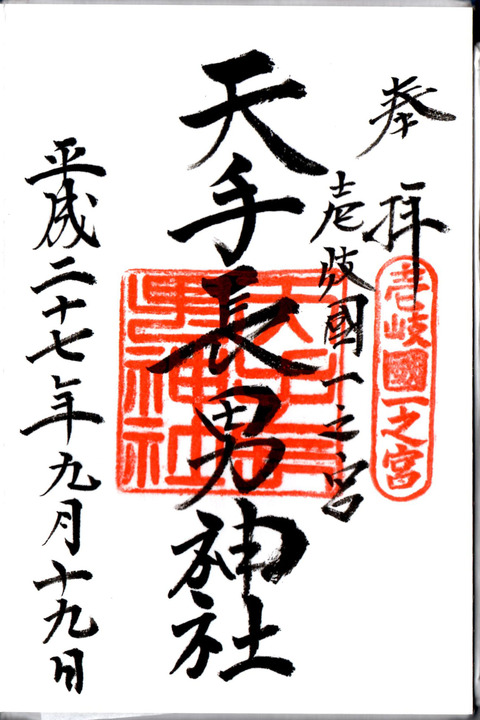 奉拝
壱岐國一之宮
壱岐國一之宮
天手長男神社
天手長男神社
平成二十七年九月十九日